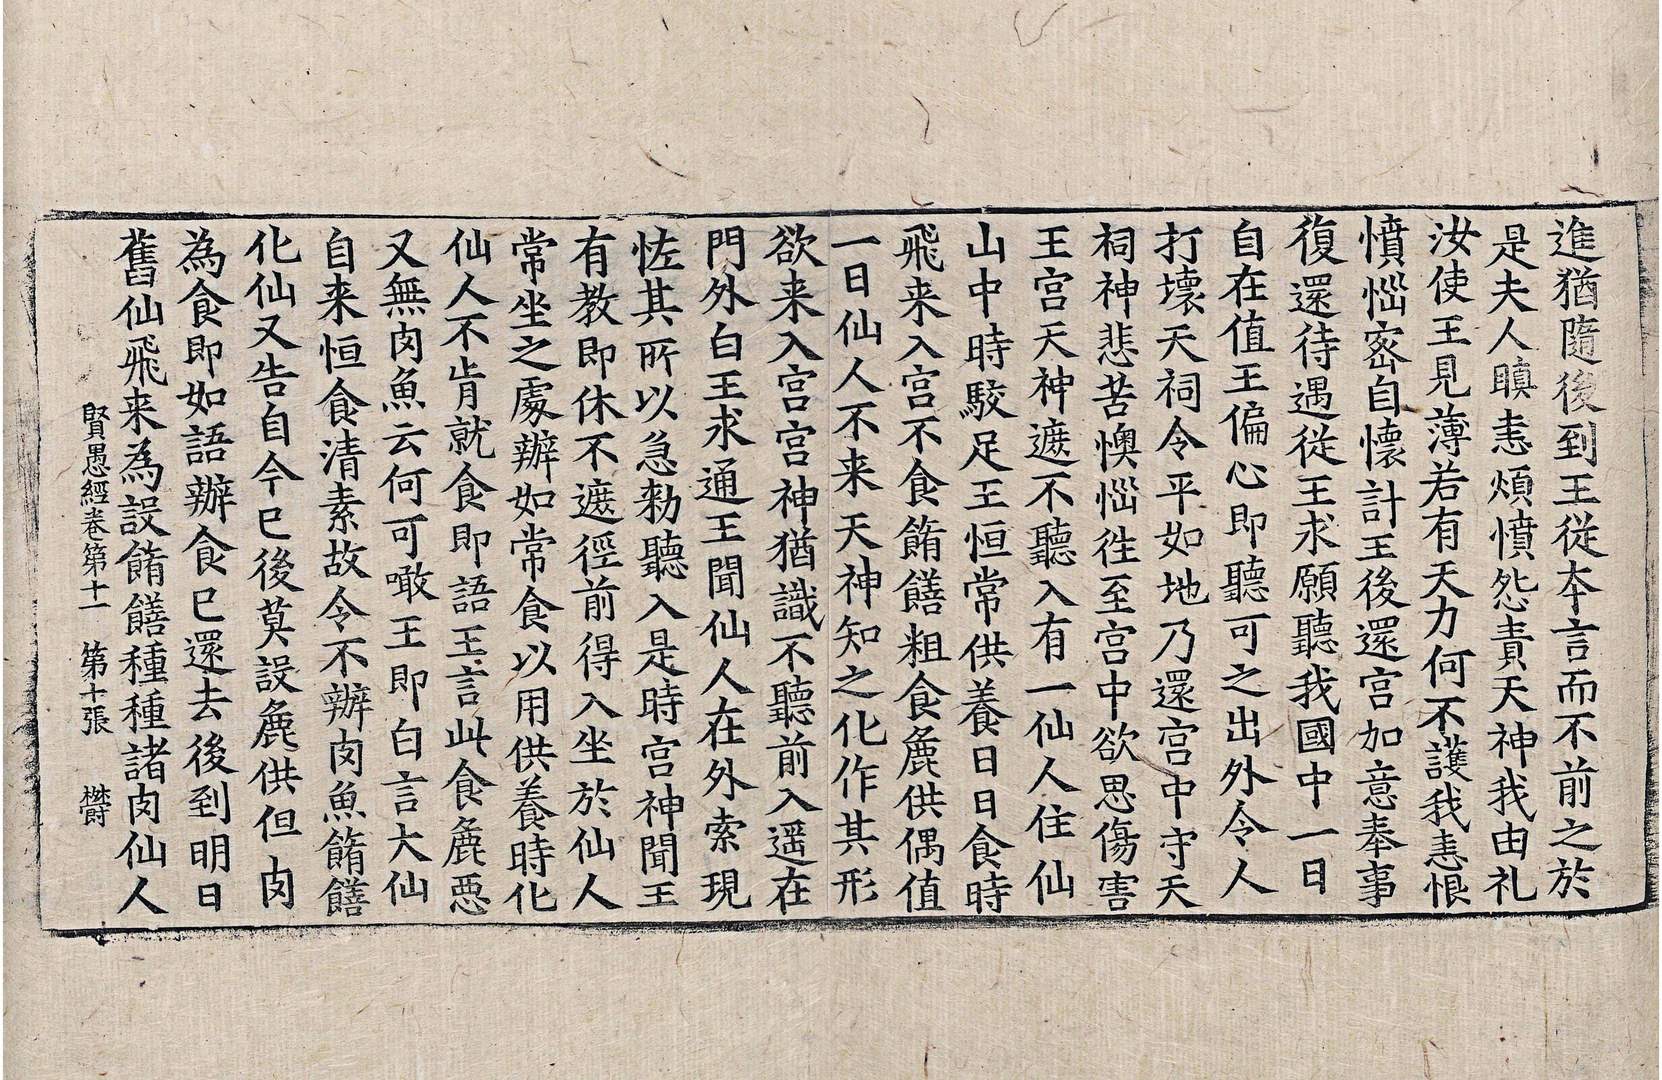 進猶隨後到王從本言而不前之於
是夫人瞋恚煩憤怨責天神我由礼
汝使王見薄若有天力何不護我恚恨
憤惱宻自懷計王後還宫加意奉事
復還待遇從王求願聽我國中一日
自在值王偏心即聽可之出外令人
打壞天祠令平如地乃還宫中守天
祠神悲苦懊惱徃至宫中欲思傷害
王宫天神遮不聽入有一仙人住仙
山中時駮足王恒常供養日日食時
飛来入宫不食餚饍粗食麁供偶值
一日仙人不来天神知之化作其形
欲来入宫宫神猶識不聽前入遥在
門外白王求通王聞仙人在外索現
恠其所以急勑聽入是時宫神聞王
有教即休不遮徑前得入坐於仙人
常坐之處辦如常食以用供養時化
仙人不肯就食即語王言此食麁惡
又無肉魚云何可噉王即白言大仙
自来恒食清素故令不辦肉魚餚饍
化仙又告自今已後莫設麁供但肉
為食即如語辦食已還去後到明日
舊仙飛来為設餚饍種種諸肉仙人
賢愚經卷第十一　第十張　欝